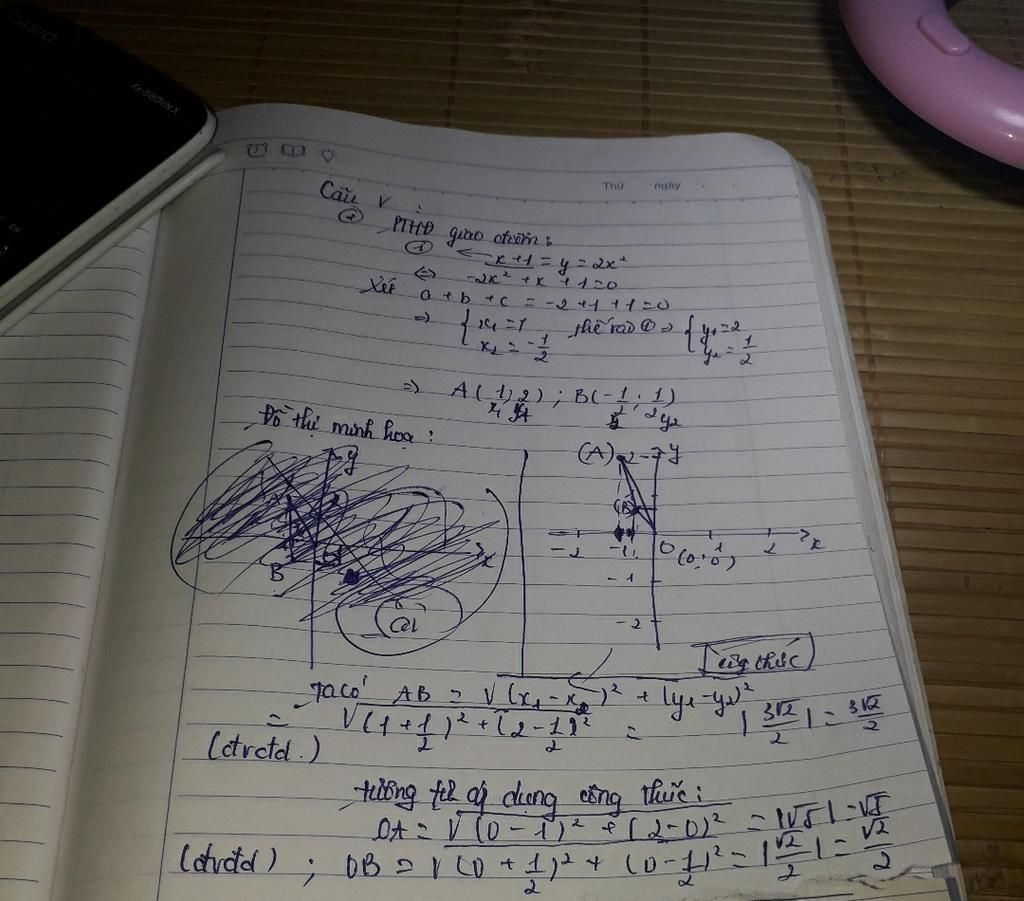 CASIO
fx-580VN X
Thứ ngày
Câu V :
+ PTHĐ giao điểm :
① x + 1 = y = 2x²
⇔ -2x² + x + 1 = 0
Xét a + b + c = -2 + 1 + 1 = 0
⇒ { x₁ = 1 thế vào ① ⇒ { y₁ = 2
x₂ = -1/2 y₂ = 1/2
⇒ A(1; 2) ; B(-1/2; 1/2)
x₁ y₁ y₂
Đồ thị minh hoạ :
y
A
x
B
(A) 2 y
(B)
-2 -1 O 1 2 x
(0; 0)
-1
-2
Công thức
Ta có AB = √(x₁ - x₂)² + (y₁ - y₂)²
= √(1 + 1/2)² + (2 - 1/2)² = |3√2/2| = 3√2/2
(đvđd.)
tương tự áp dụng công thức :
OA = √(0 - 1)² + (2 - 0)² = |√5| = √5
(đvđd) ; OB = √(0 + 1/2)² + (0 - 1/2)² = |√2/2| = √2/2